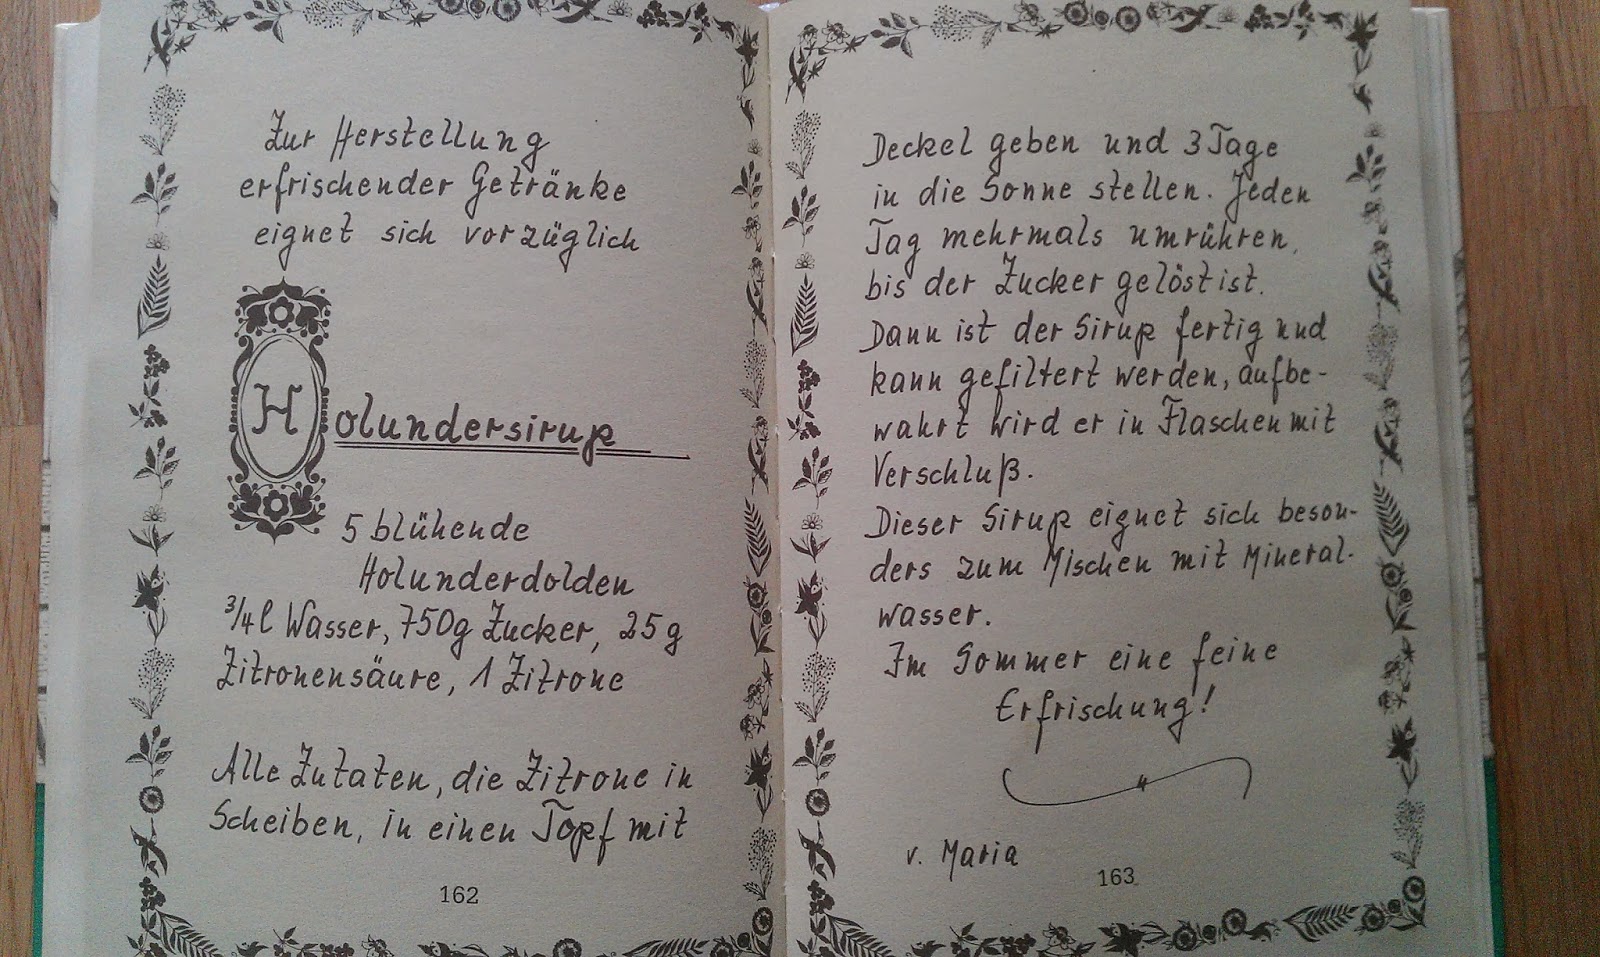 Zur Herstellung
erfrischender Getränke
eignet sich vorzüglich
Holundersirup
5 blühende
Holunderdolden
3/4 l Wasser, 750g Zucker, 25g
Zitronensäure, 1 Zitrone
Alle Zutaten, die Zitrone in
Scheiben, in einen Topf mit
162
Deckel geben und 3 Tage
in die Sonne stellen. Jeden
Tag mehrmals umrühren,
bis der Zucker gelöst ist.
Dann ist der Sirup fertig und
kann gefiltert werden, aufbe-
wahrt wird er in Flaschen mit
Verschluß.
Dieser Sirup eignet sich beson-
ders zum Mischen mit Mineral-
wasser.
Im Sommer eine feine
Erfrischung!
v. Maria
163